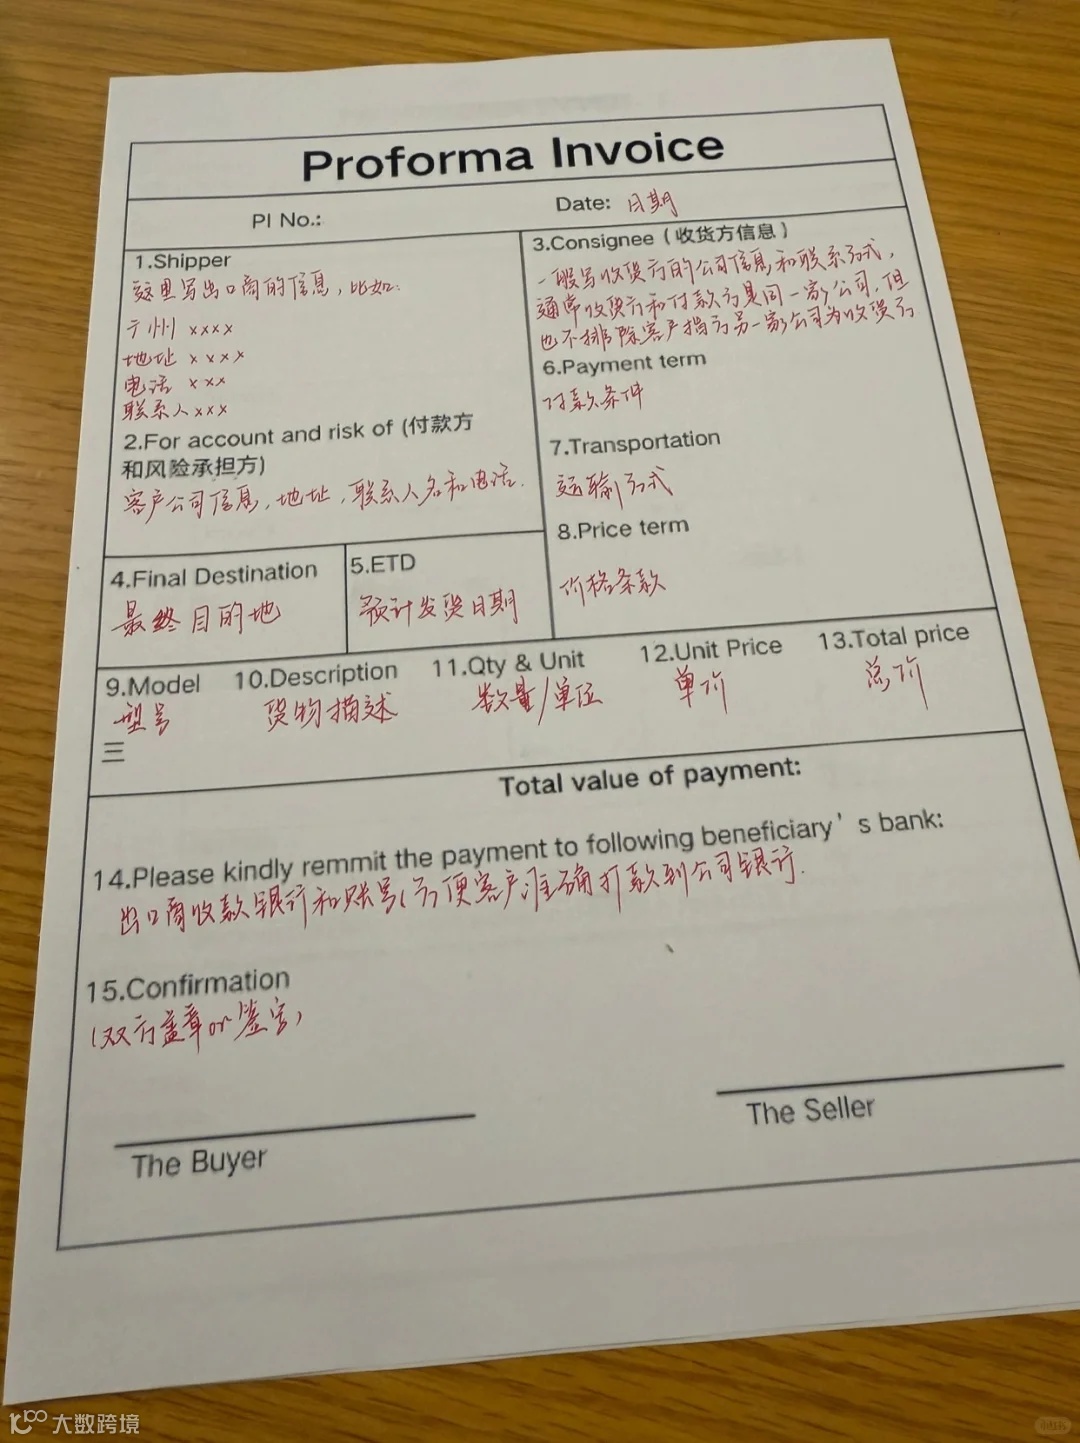 Proforma Invoice
PI No.:
Date: 日期
1.Shipper
这里写出口商的信息，比如：
广州 xxxx
地址 xxxx
电话 xxx
联系人xxx
2.For account and risk of (付款方
和风险承担方)
客户公司信息，地址，联系人名和电话.
3.Consignee（收货方信息）
一般写收货方的公司信息和联系方式，
通常收货方和付款方是同一家公司，但
也不排除客户指示另一家公司为收货方
6.Payment term
付款条件
7.Transportation
运输方式
8.Price term
价格条款
4.Final Destination
最终目的地
5.ETD
预计发货日期
9.Model 10.Description 11.Qty & Unit 12.Unit Price 13.Total price
型号 货物描述 数量/单位 单价 总价
三
Total value of payment:
14.Please kindly remmit the payment to following beneficiary's bank:
出口商收款银行和账号(方便客户准确打款到公司银行.
15.Confirmation
(双方盖章or签字)
The Buyer
The Seller
大数跨境